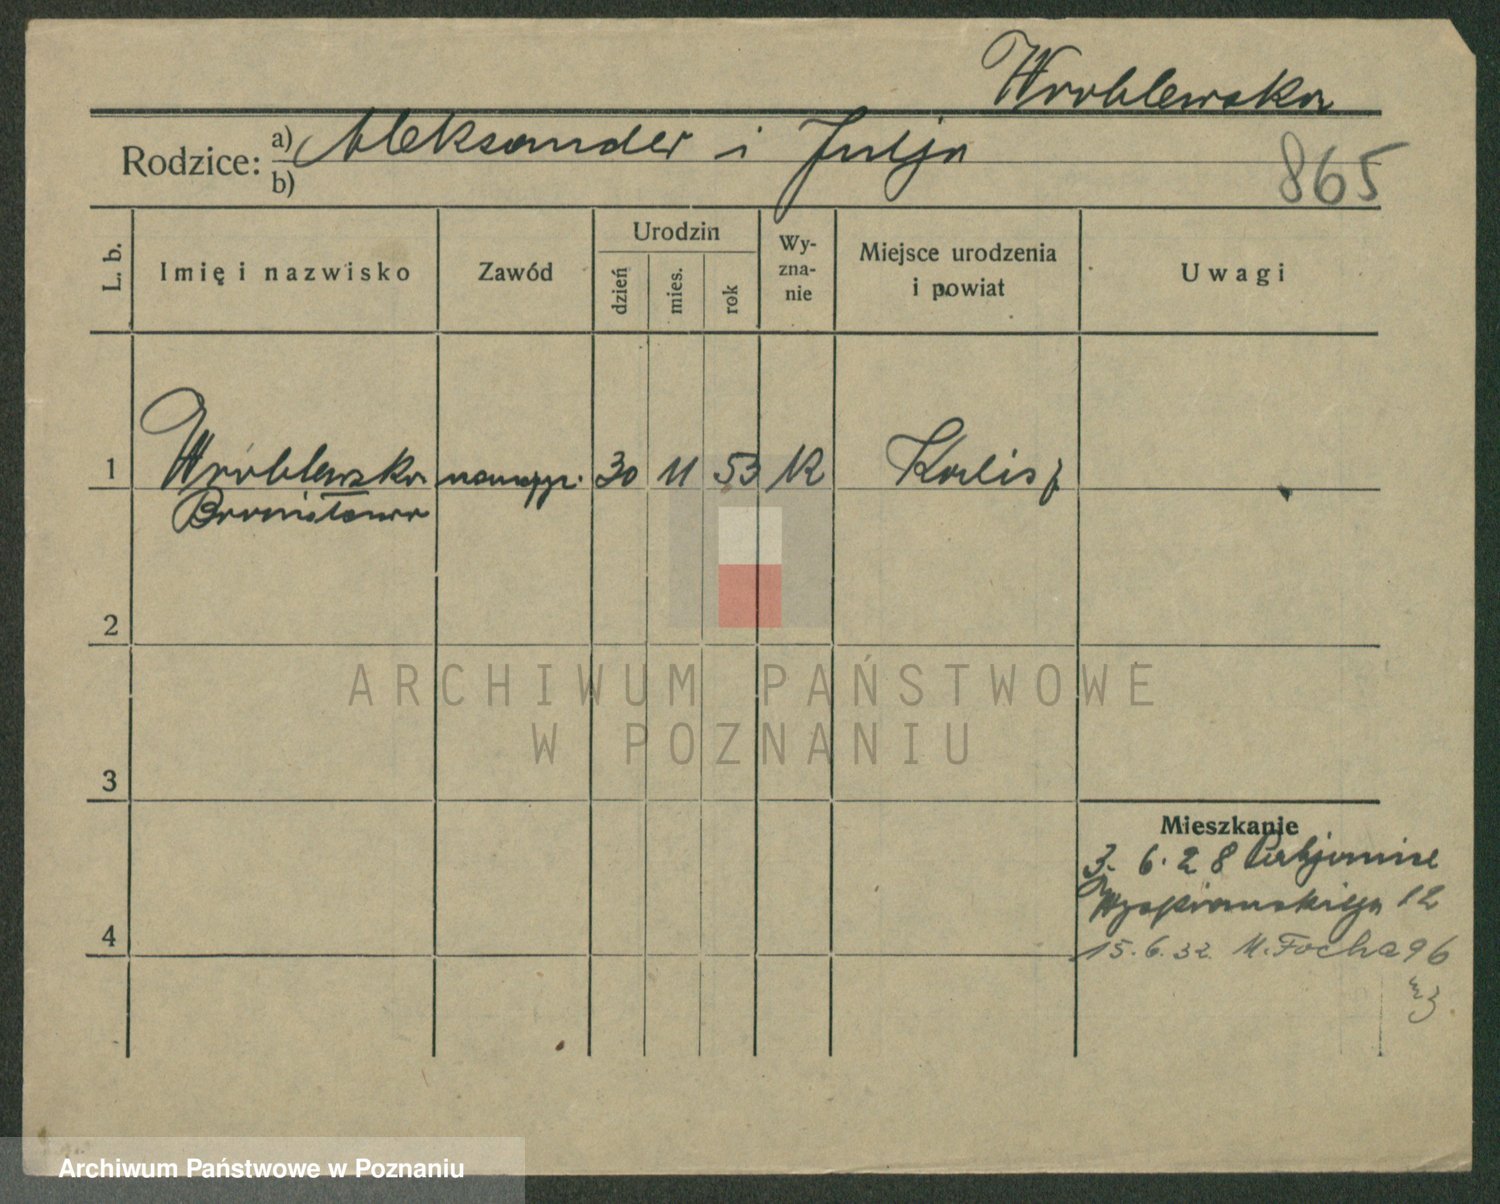 Wroblewska
Rodzice: a) Aleksander i Julja
b)
865
L. b.
Imię i nazwisko
Zawód
Urodzin
dzień
mies.
rok
Wy-
zna-
nie
Miejsce urodzenia
i powiat
Uwagi
1 Wróblewska 30 11 53 K Kalisz
Bronisława
2
3
4
Mieszkanie
3. 6. 28
Wyspiańskiego 12
15. 6. 32. M. Focha 96
ARCHIWUM PAŃSTWOWE
W POZNANIU
Archiwum Państwowe w Poznaniu